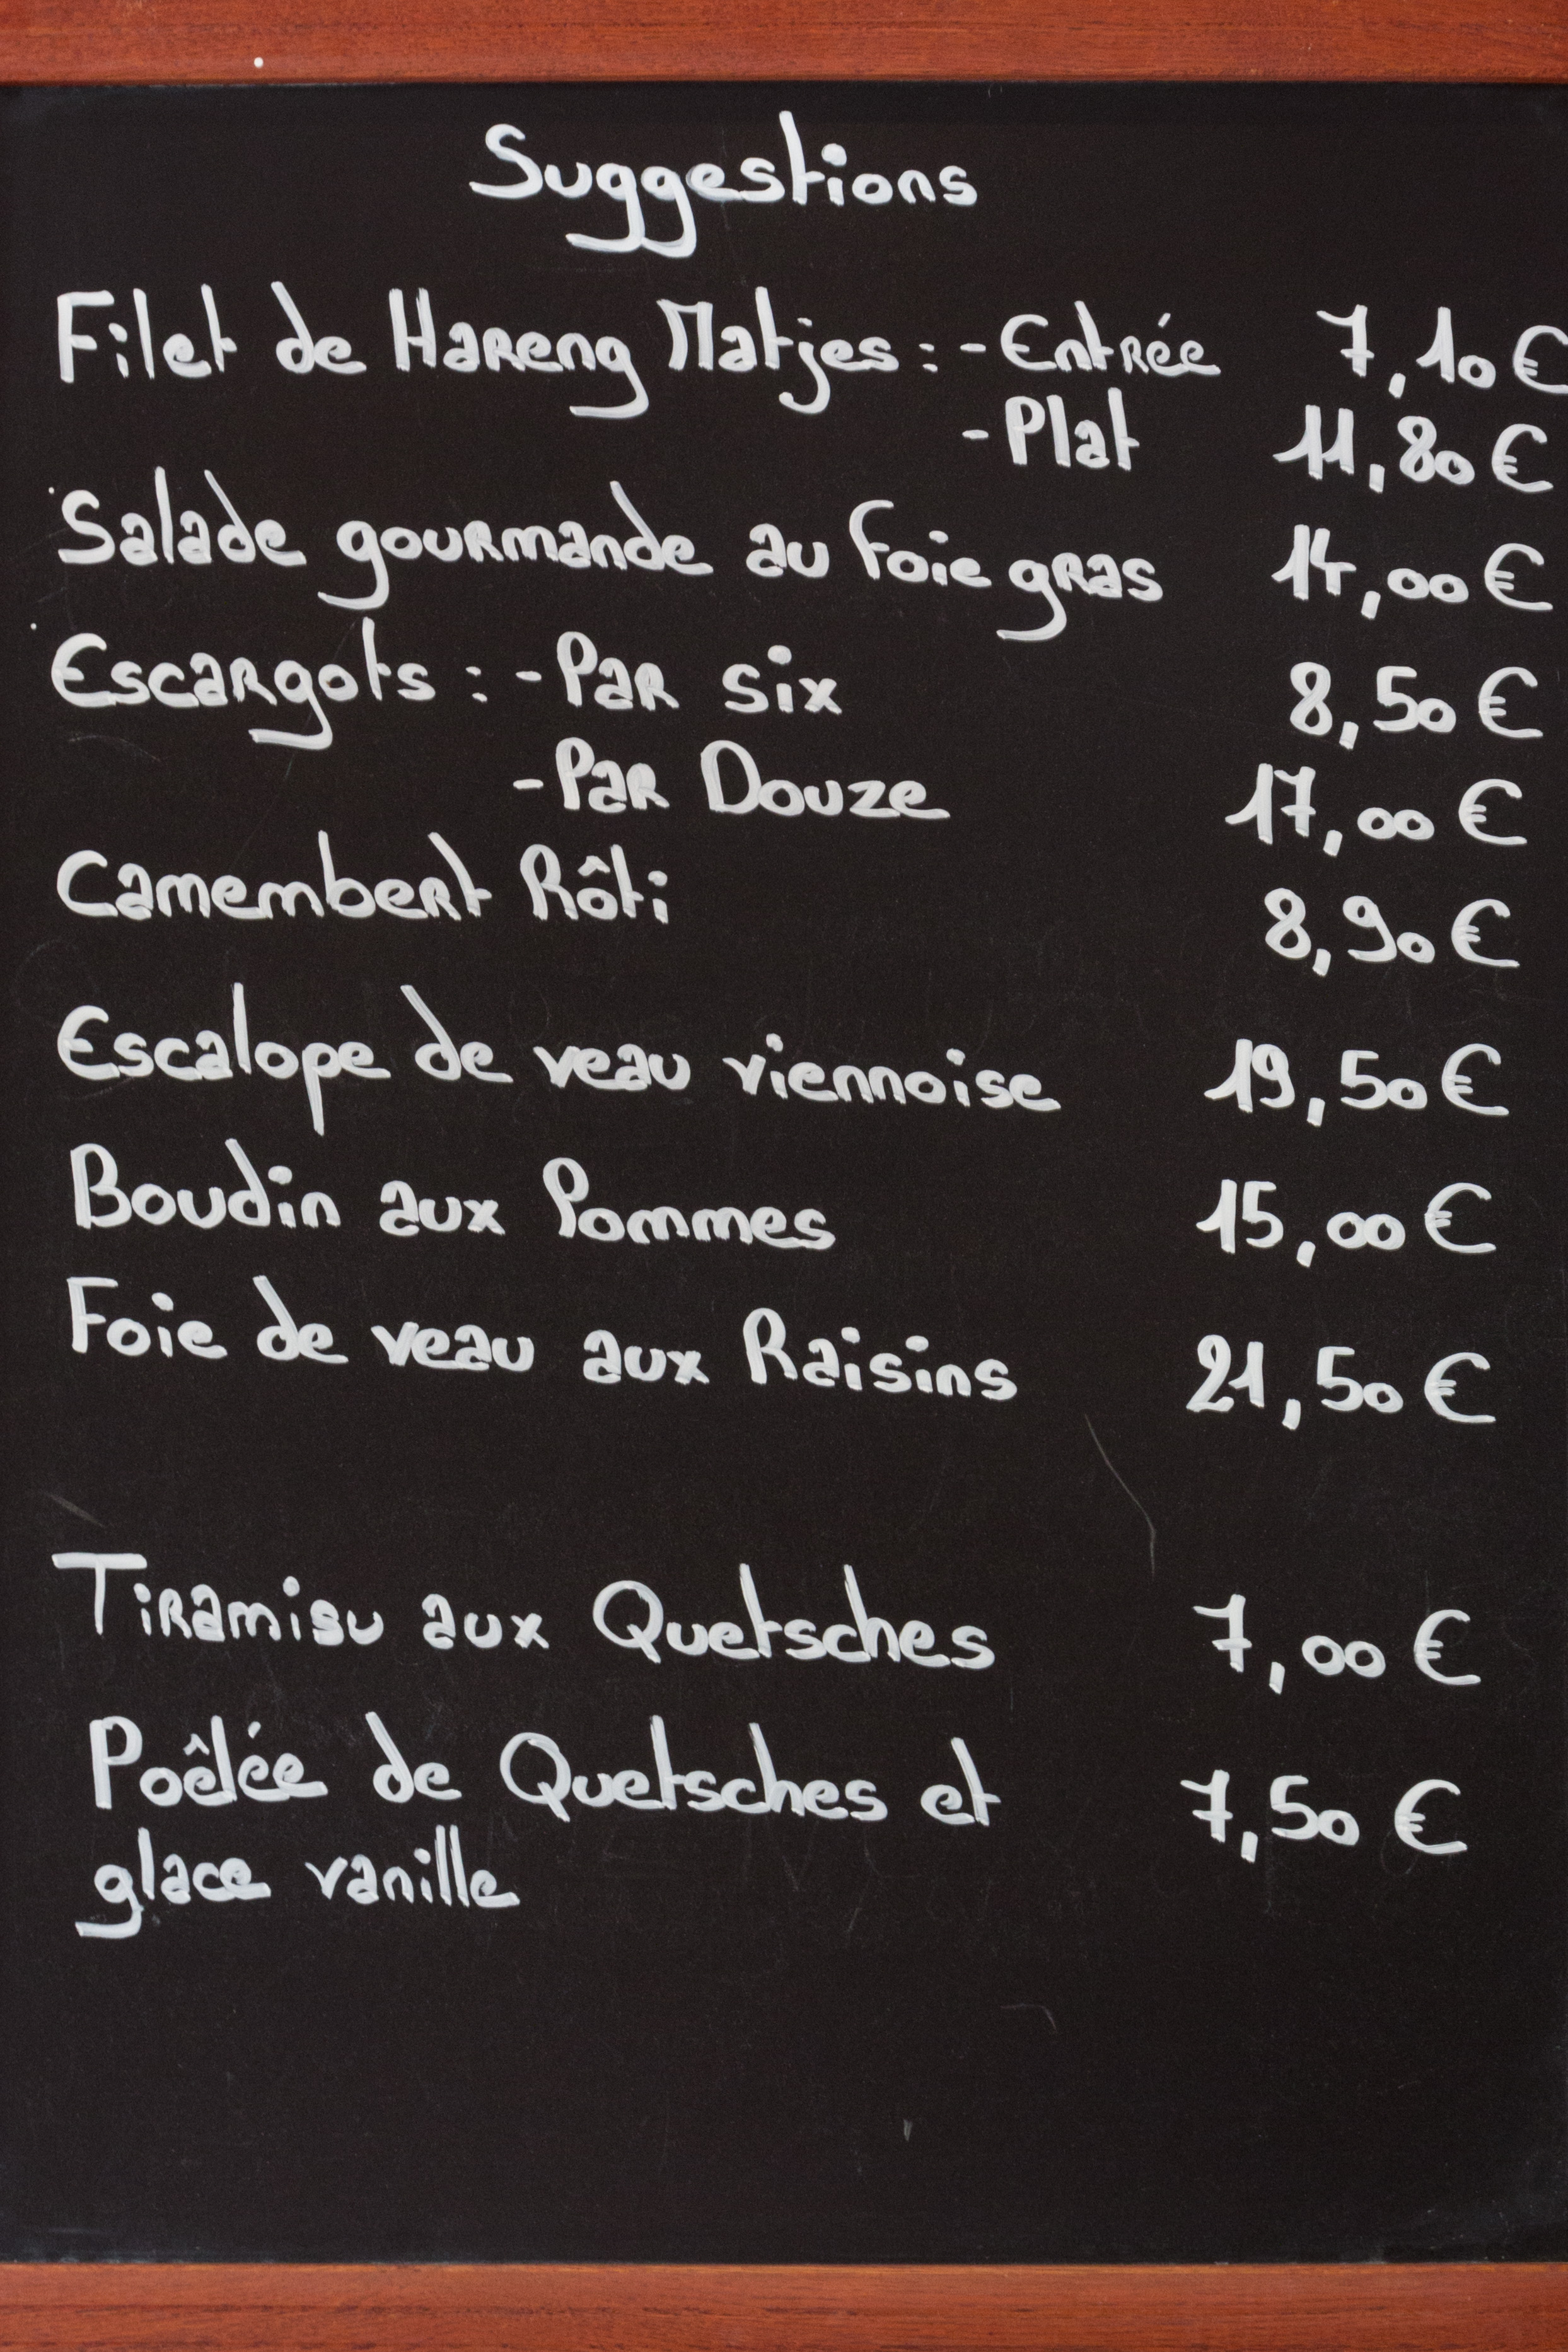 Suggestions
Filet de Hareng Matjes : - Entrée 7,10 €
- Plat 11,80 €
Salade gourmande au foie gras 14,00 €
Escargots : - Par six 8,50 €
- Par Douze 17,00 €
Camembert Rôti 8,90 €
Escalope de veau viennoise 19,50 €
Boudin aux Pommes 15,00 €
Foie de veau aux Raisins 21,50 €
Tiramisu aux Quetsches 7,00 €
Poêlée de Quetsches et 7,50 €
glace vanille